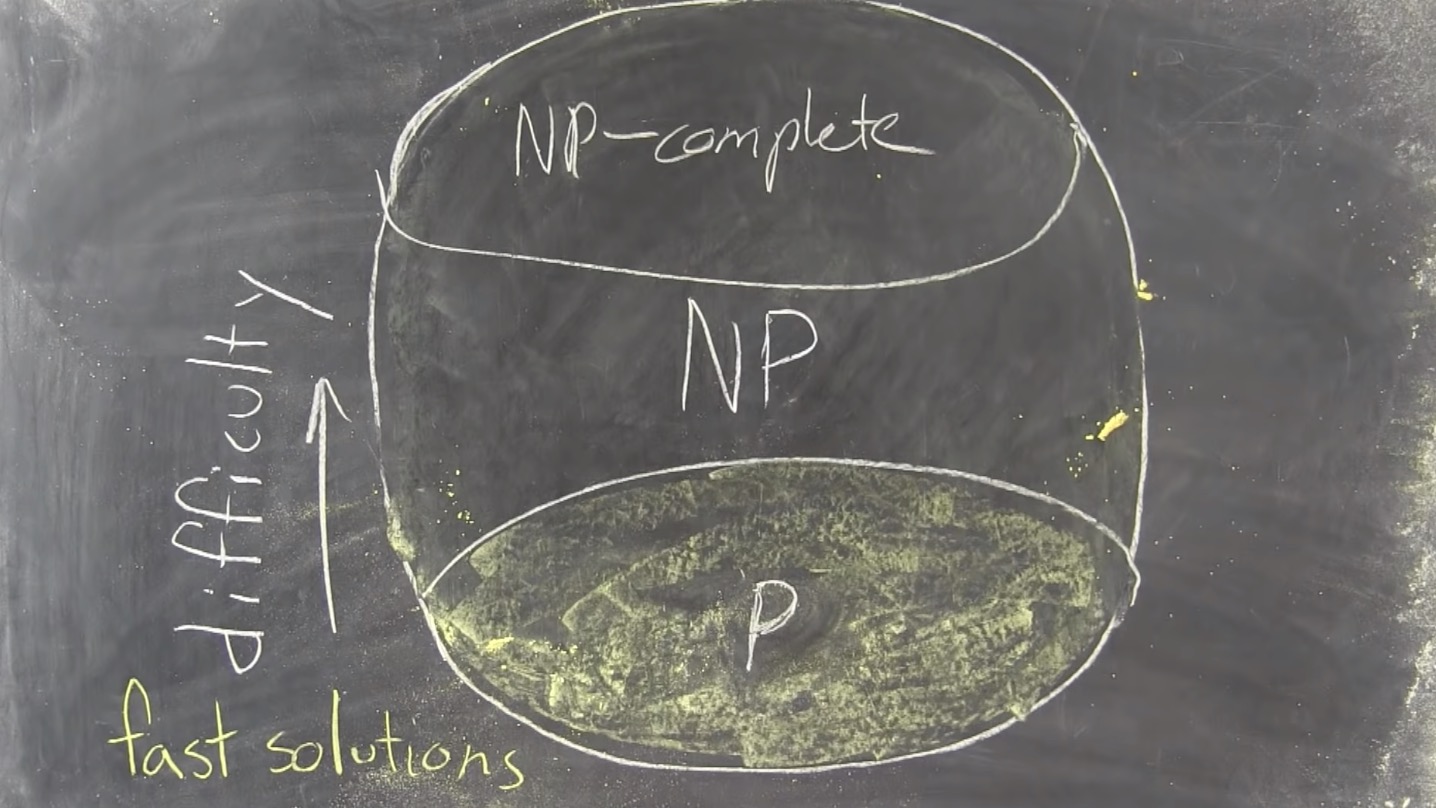 NP-complete
NP
difficulty
P
fast solutions